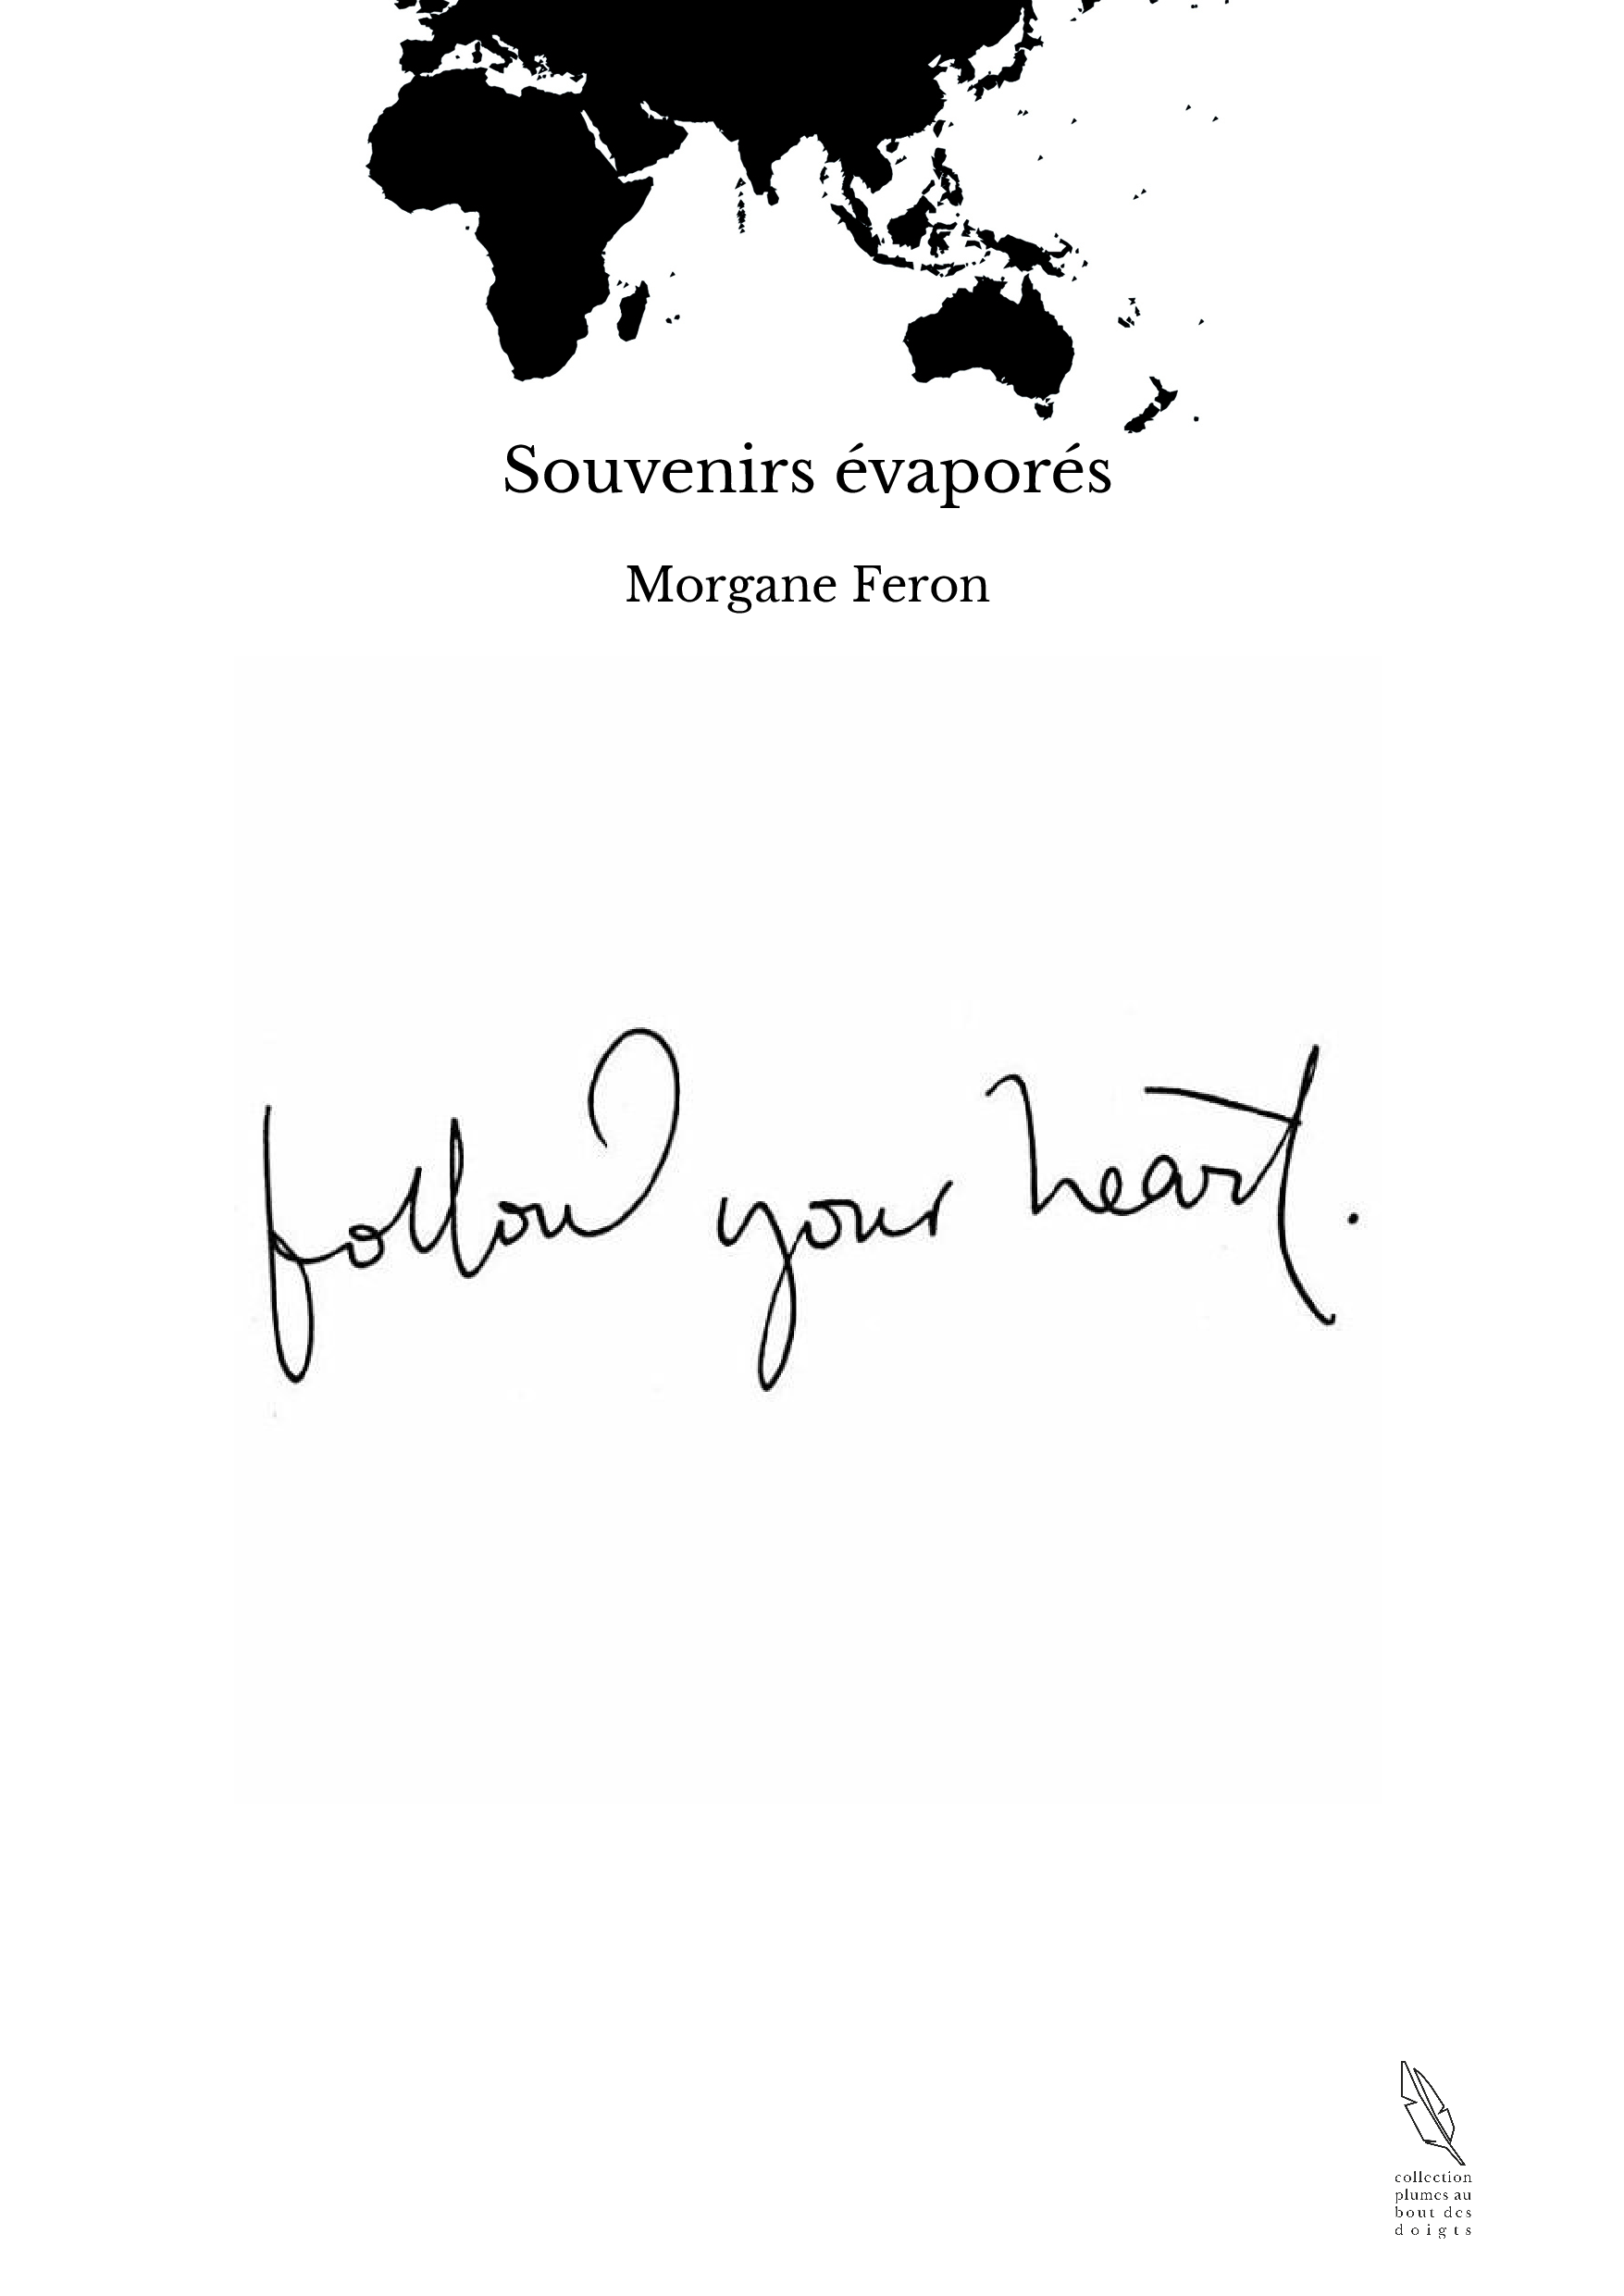 Souvenirs évaporés
Morgane Feron
follow your heart.
collection
plumes au
bout des
doigts